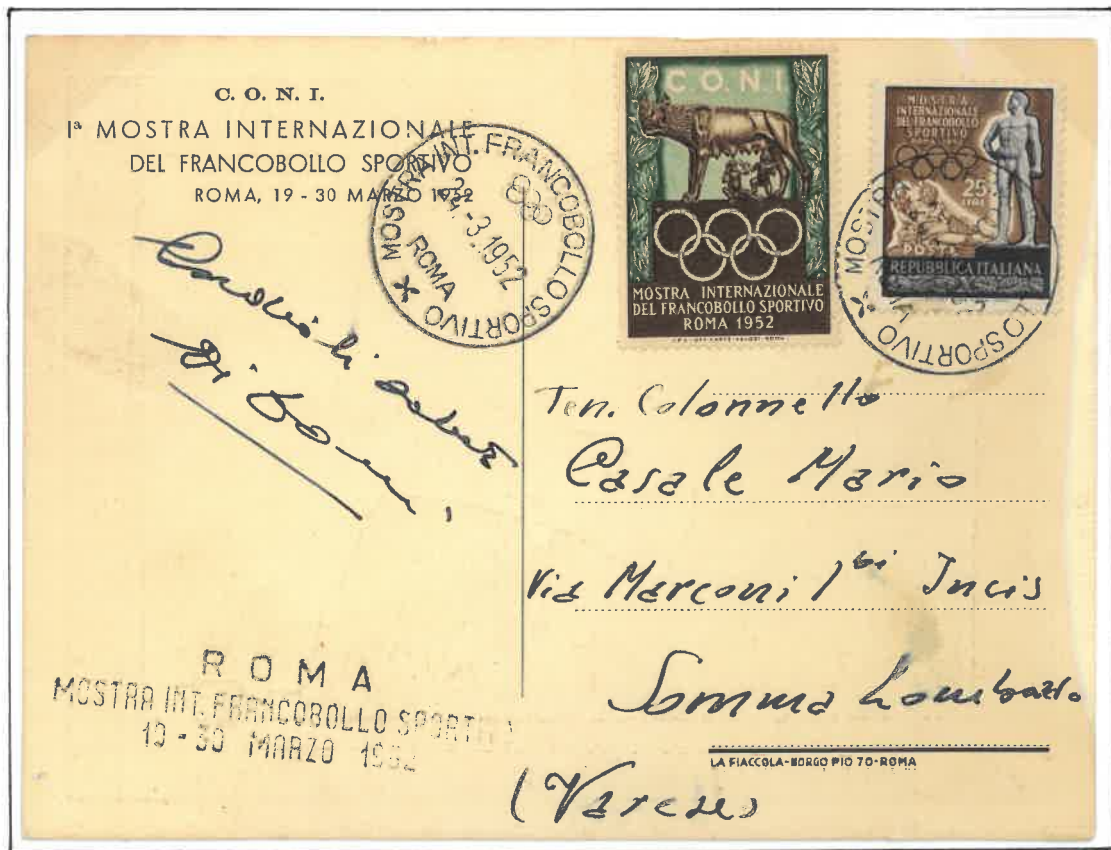 C. O. N. I.
Iª MOSTRA INTERNAZIONALE
DEL FRANCOBOLLO SPORTIVO
ROMA, 19 - 30 MARZO 1952
MOSTRA INT. FRANCOBOLLO SPORTIVO
-3.1952
ROMA
C.O.N.I.
MOSTRA INTERNAZIONALE
DEL FRANCOBOLLO SPORTIVO
ROMA 1952
MOSTRA
INTERNAZIONALE
DEL FRANCOBOLLO
SPORTIVO
25
LIRE
POSTE
REPUBBLICA ITALIANA
MOSTRA
LO SPORTIVO
Cordiali saluti
Ten. Colonnello
Casale Mario
Via Marconi 1 bis Incis
Somma Lombardo
(Varese)
LA FIACCOLA-BORGO PIO 70-ROMA
ROMA
MOSTRA INT. FRANCOBOLLO SPORTIV
19 - 30 MARZO 1952